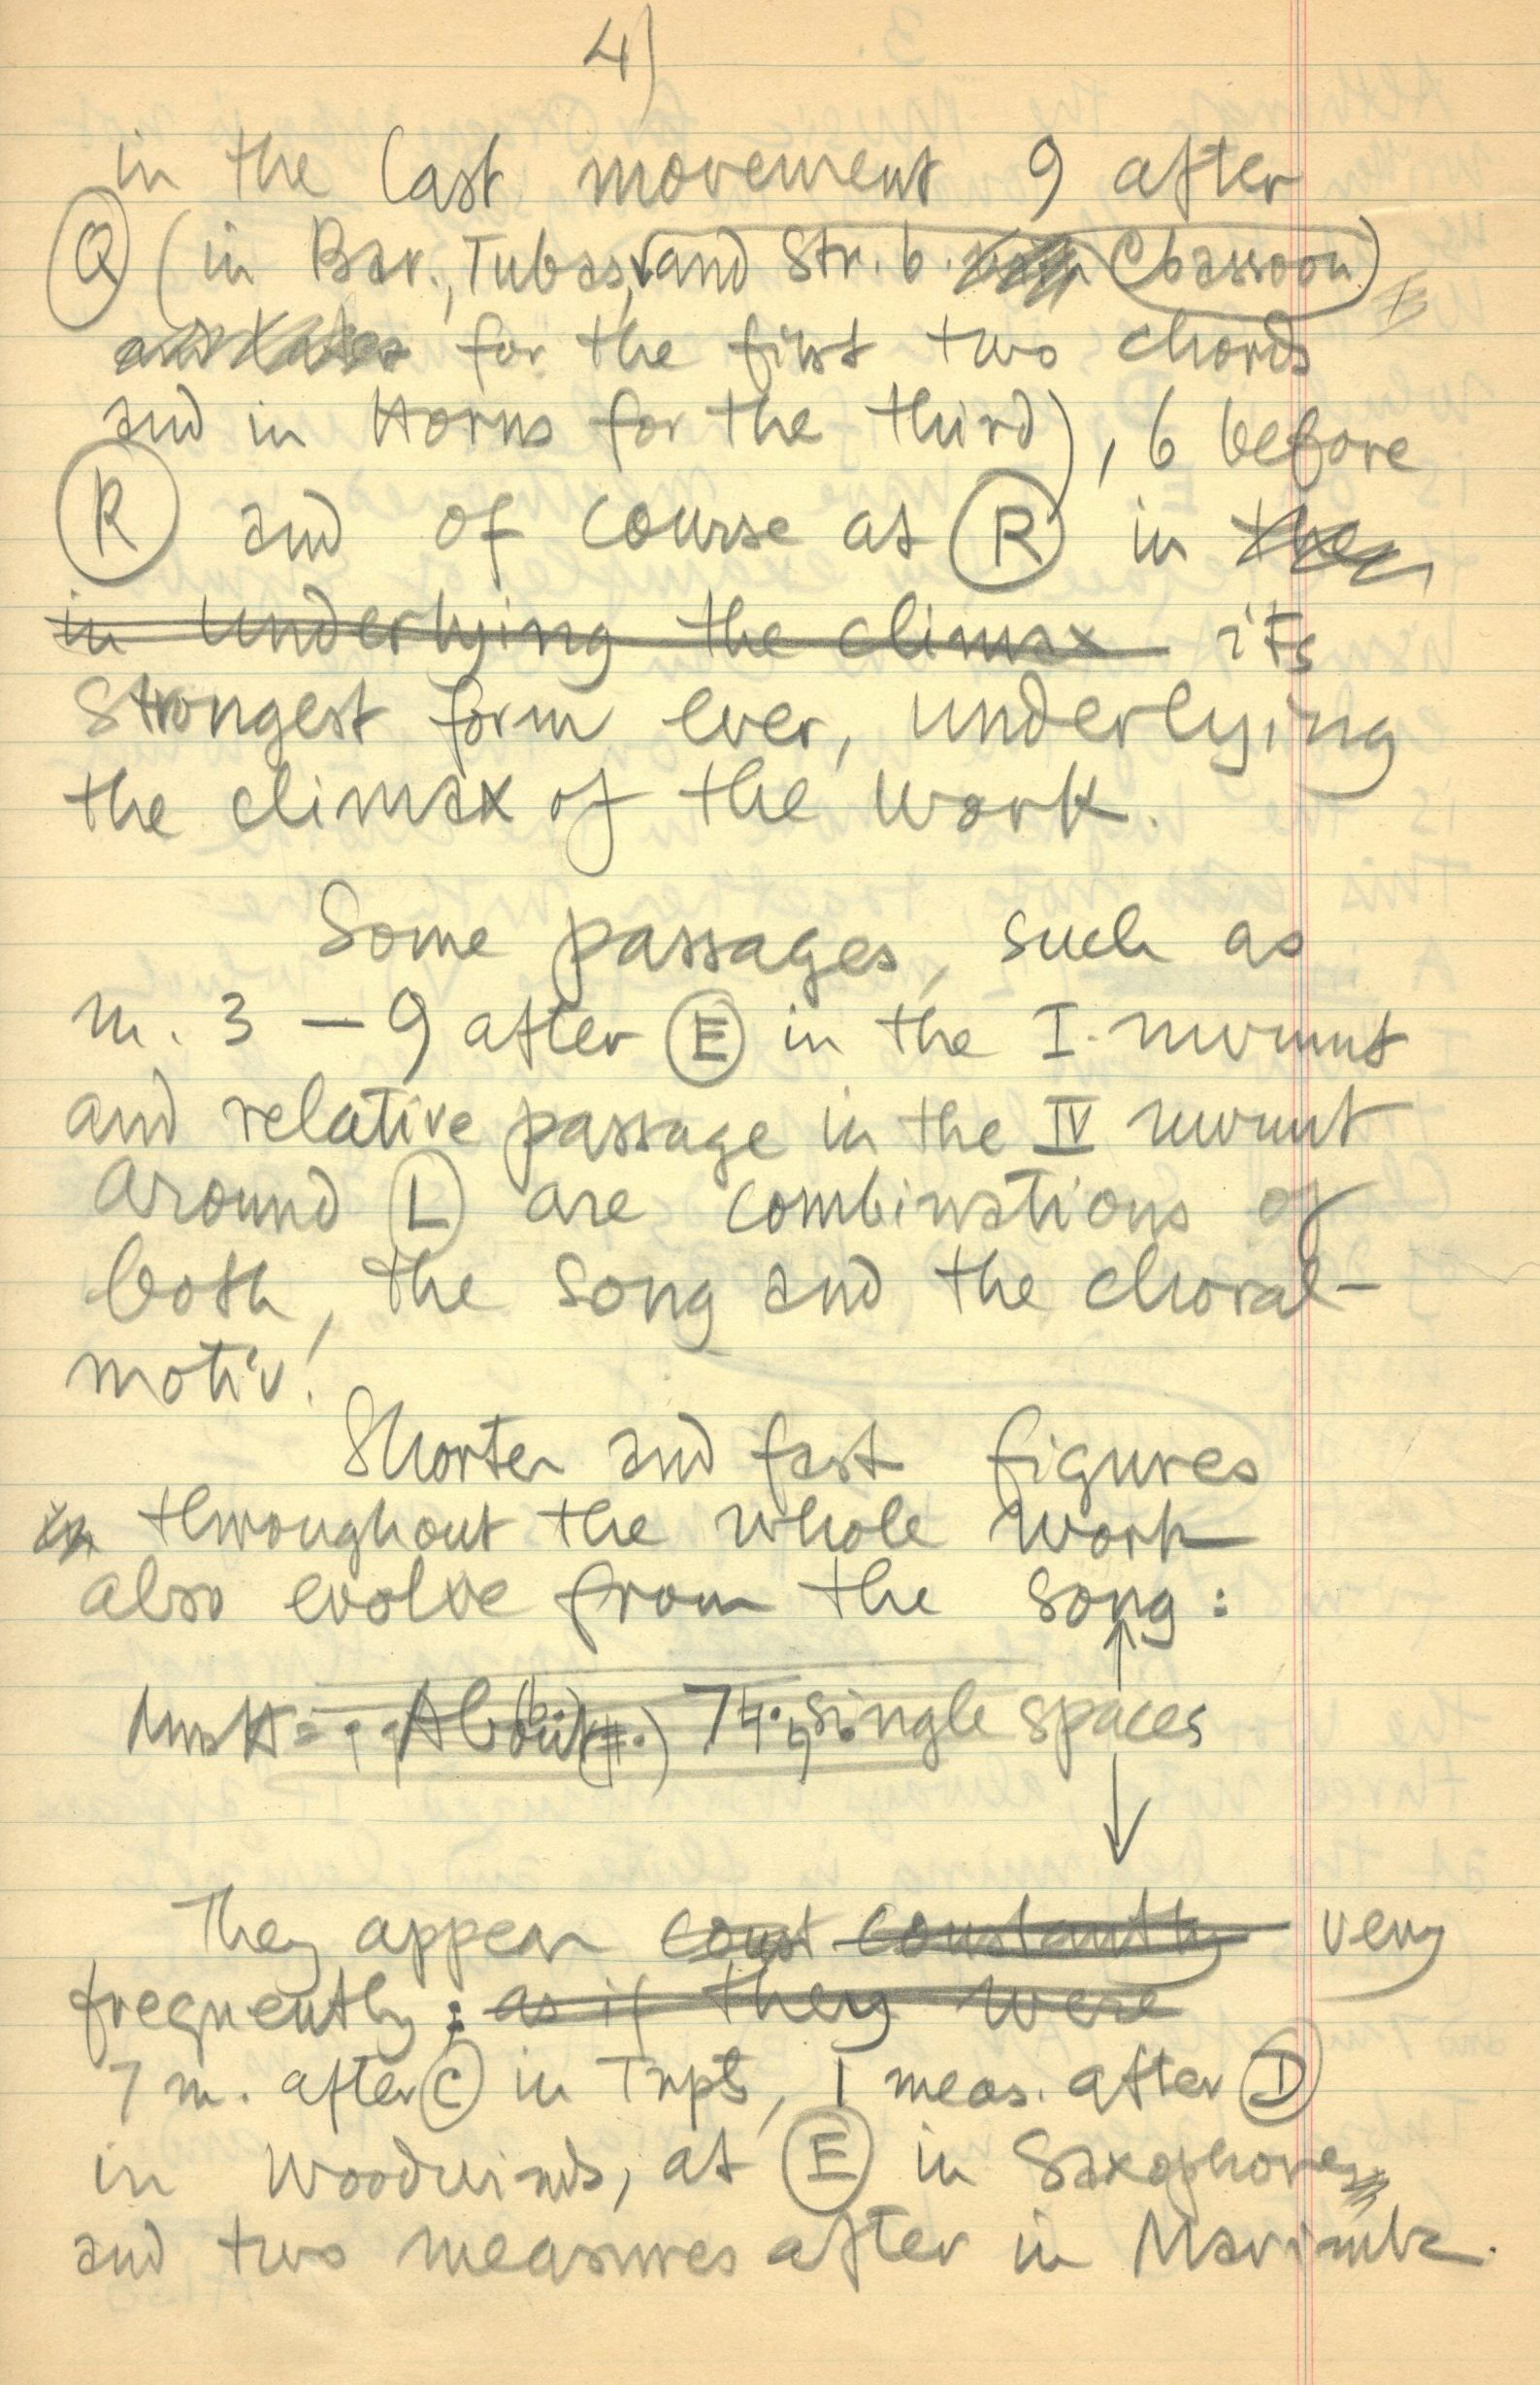 4)
in the last movement 9 after
Q (in Bar., Tubas, and Str. b. Cbassoon)
for the first two chords
and in Horns for the third), 6 before
R and of course at R in the
in underlying the climax its
strongest form ever, underlying
the climax of the work.
Some passages, such as
m. 3 – 9 after E in the I. mvmnt
and relative passage in the IV mvmnt
around L are combinations of
both, the song and the choral-
motiv!
Shorter and fast figures
in throughout the whole work
also evolve from the song:
About 7 single spaces
They appear const constantly very
frequently: as if they were
7 m. after C in Trpts, 1 meas. after D
in Woodwinds, at E in Saxophone
and two measures after in Marimba.